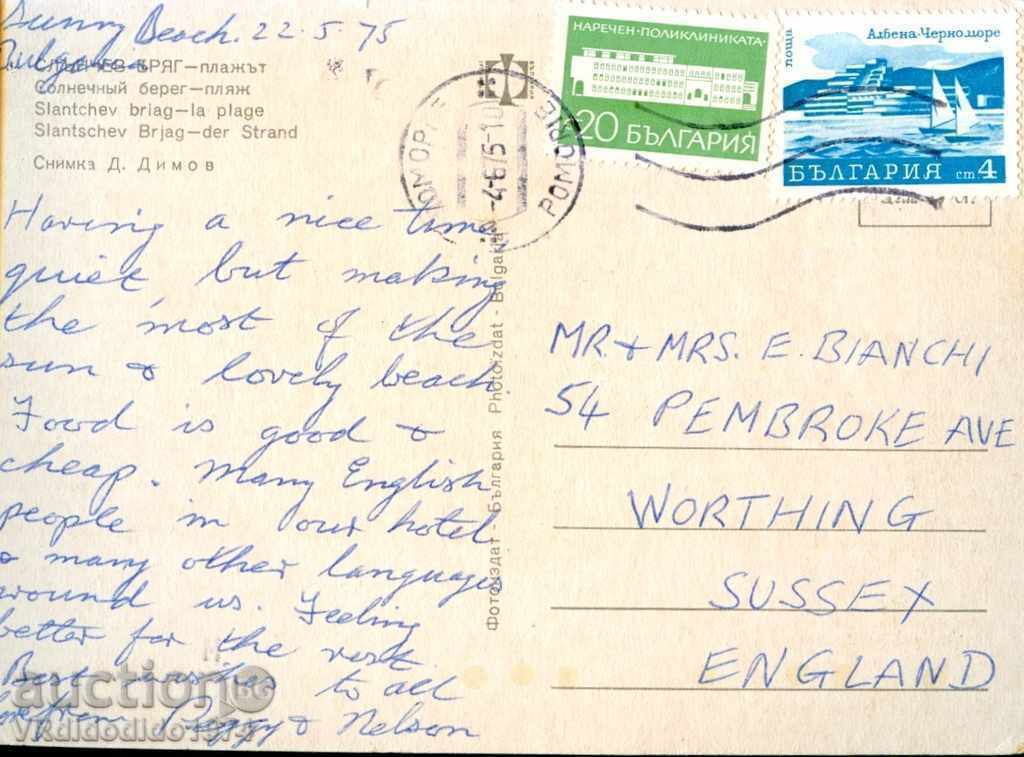 Sunny Beach. 22.5.75
Bulgaria
СЛЪНЧЕВ БРЯГ—плажът
Солнечный берег—пляж
Slantchev briag—la plage
Slantschev Brjag—der Strand
Снимка Д. Димов
Having a nice time,
quiet, but making
the most of the
sun & lovely beach
Food is good &
cheap. Many English
people in our hotel
& many other languages
around us. Feeling
better for the rest.
Best wishes to all
from Peggy & Nelson
Фотоиздат - България Photoizdat - Bulgaria
ПОМОРИЕ
-4.6.75-10
POMORIE
НАРЕЧЕН·ПОЛИКЛИНИКАТА·
20 БЪЛГАРИЯ
поща
Албена-Черноморе
БЪЛГАРИЯ ст 4
MR. & MRS. E. BIANCHI
54 PEMBROKE AVE
WORTHING
SUSSEX
ENGLAND
auction.BG
vRdidodido1974